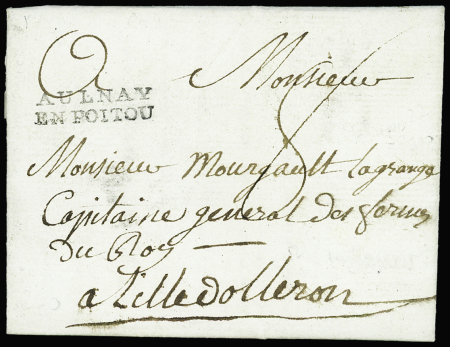 A
Monsieur
AULNAY
EN POITOU
8
Monsieur Mourgault lagrange
Capitaine general des fermes
du Roy
a Lille dolleron